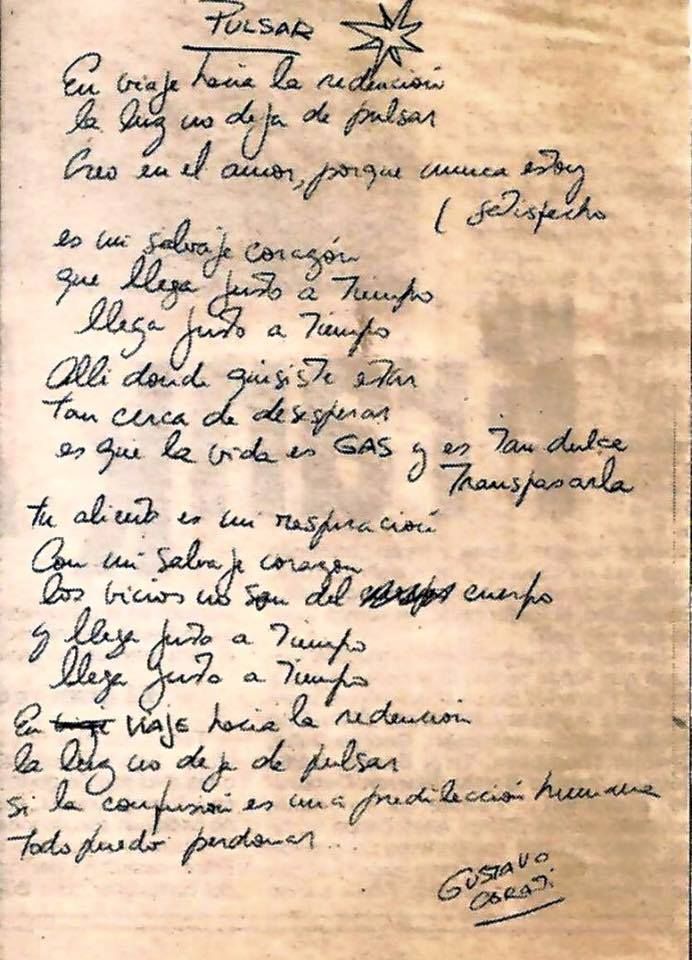 PULSAR
En viaje hacia la redención
la luz no deja de pulsar
Creo en el amor, porque nunca estoy
( satisfecho
es mi salvaje corazón
que llega justo a Tiempo
llega justo a Tiempo
Alli donde quisiste estar
tan cerca de desesperar
es que la vida es GAS y es Tan dulce
Transpasarla
tu aliento es mi respiración
Con mi salvaje corazon
los vicios no son del cuerpo
y llega justo a Tiempo
llega justo a Tiempo
En viaje VIAJE hacia la redención
la luz no deja de pulsar
si la confusión es una predilección humana
todo puedo perdonar...
GUSTAVO
CERATI